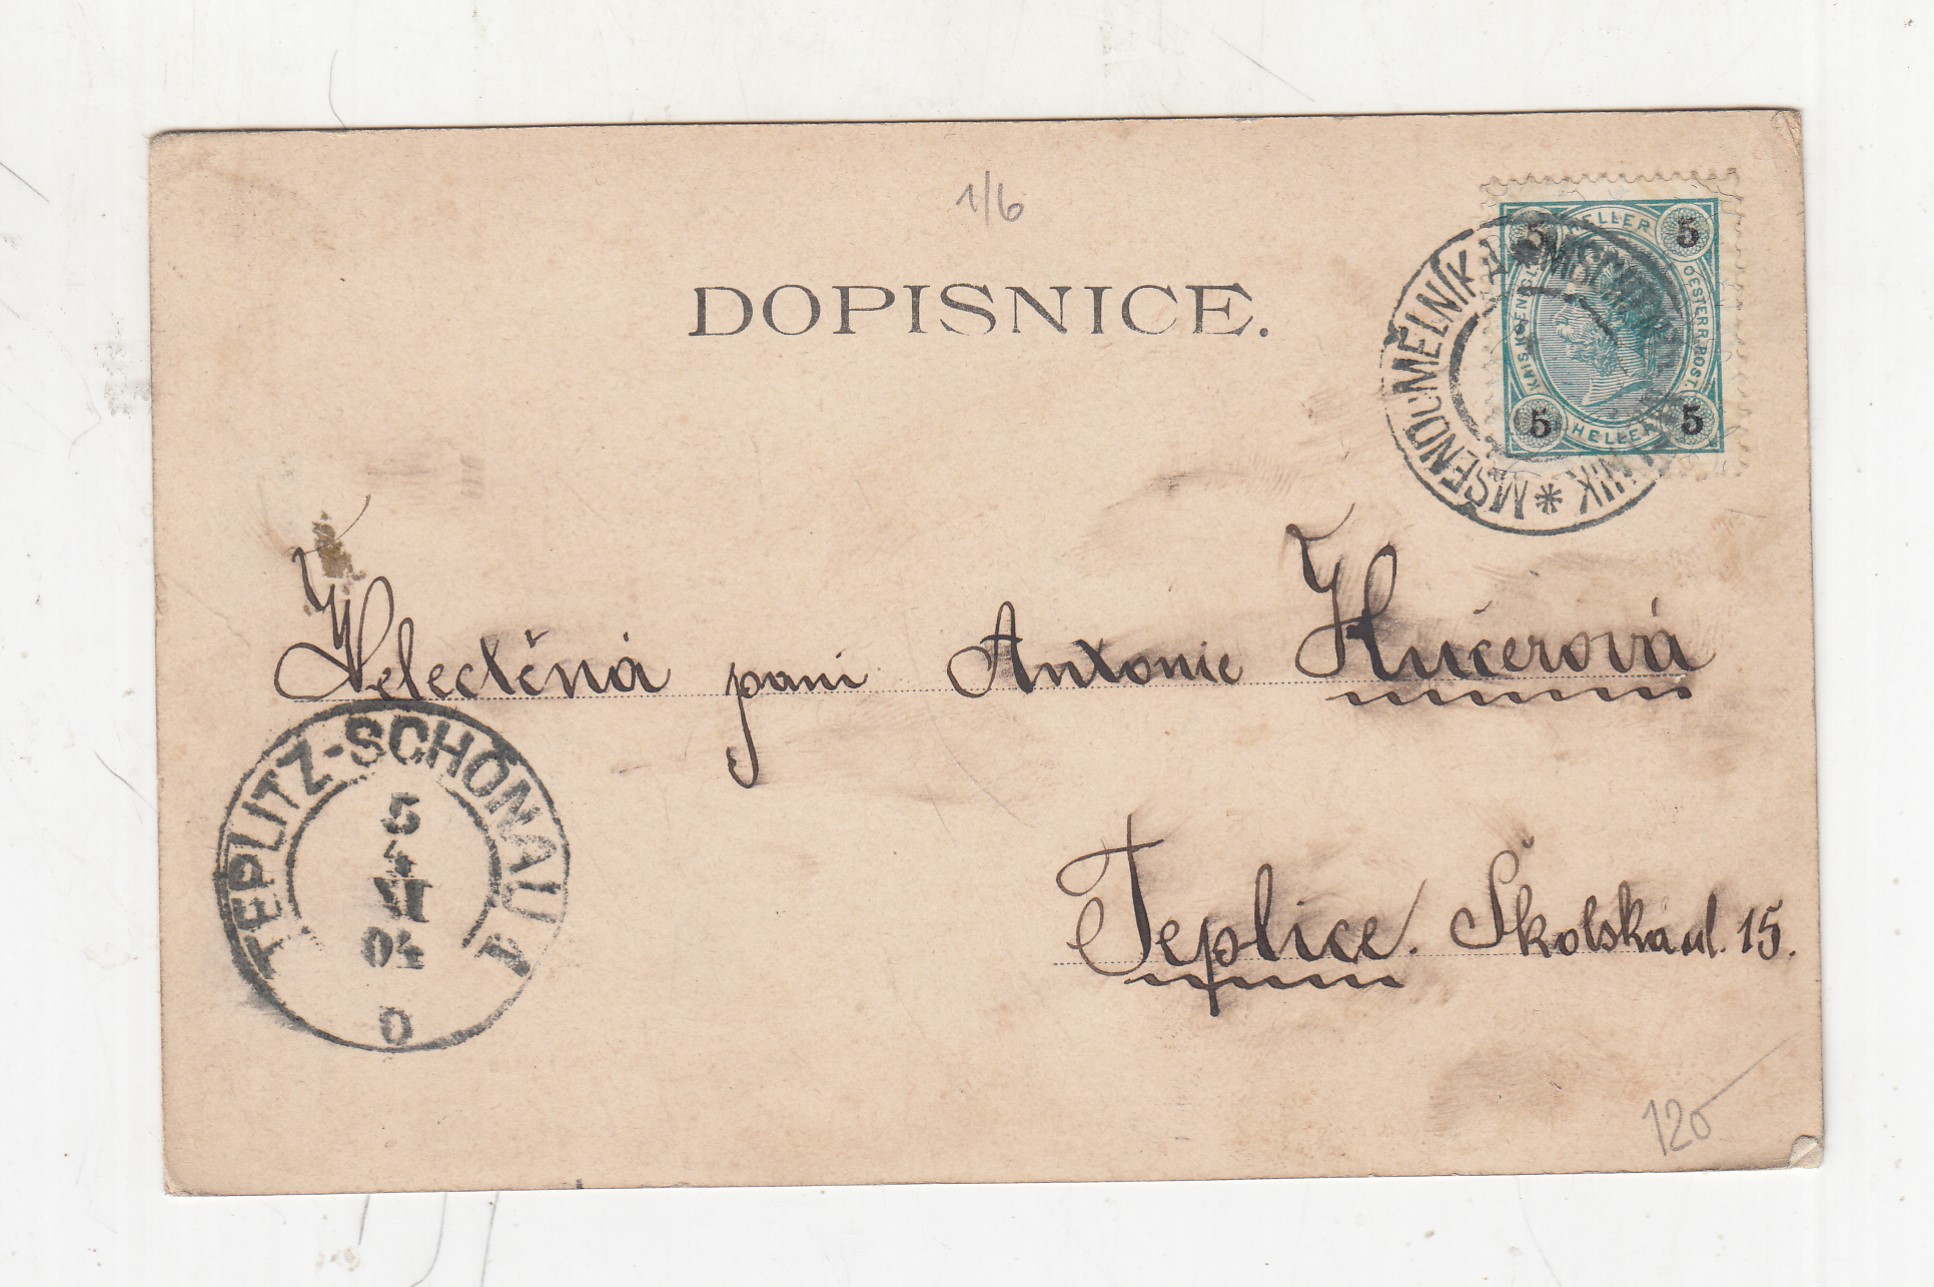 1/6
DOPISNICE.
HELLER
5 5
KAIS. KOENIGL. OESTERR. POST.
5 5
HELLER
MŠENO U MĚLNÍKA
Velectěná paní Antonie Kučerová
Teplice. Školská ul. 15.
TEPLITZ-SCHÖNAU 1
5
4
VI
04
120